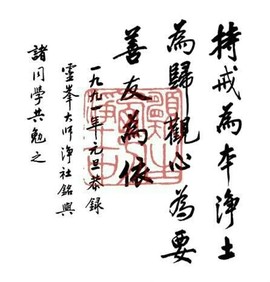 持戒為本淨土
為歸觀心為要
善友為依
一九九一年元旦恭録
靈峯大師淨社銘與
諸同學共勉之